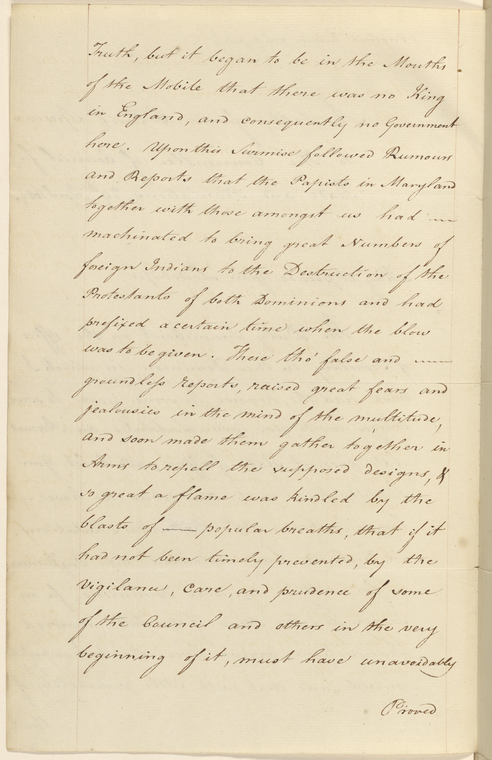 Truth, but it began to be in the Mouths
of the Mobile that there was no King
in England, and consequently no Government
here. Upon this Surmise followed Rumours
and Reports that the Papists in Maryland
together with those amongst us had —
machinated to bring great Numbers of
foreign Indians to the Destruction of the
Protestants of both Dominions and had
prefixed a certain time when the blow
was to be given. These tho' false and —
groundless reports, raised great fears and
jealousies in the mind of the multitude,
and soon made them gather together in
Arms to repell the supposed designs, &
so great a flame was kindled by the
blasts of — popular breaths, that if it
had not been timely prevented, by the
Vigilance, Care, and prudence of some
of the Council and others in the very
beginning of it, must have unavoidably
Proved